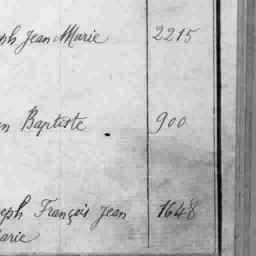 ph Jean Marie 2215
n Baptiste 900
seph François Jean 1648
Marie